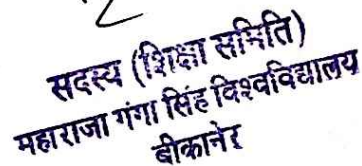 सदस्य (शिक्षा समिति)
महाराजा गंगा सिंह विश्वविद्यालय
बीकानेर